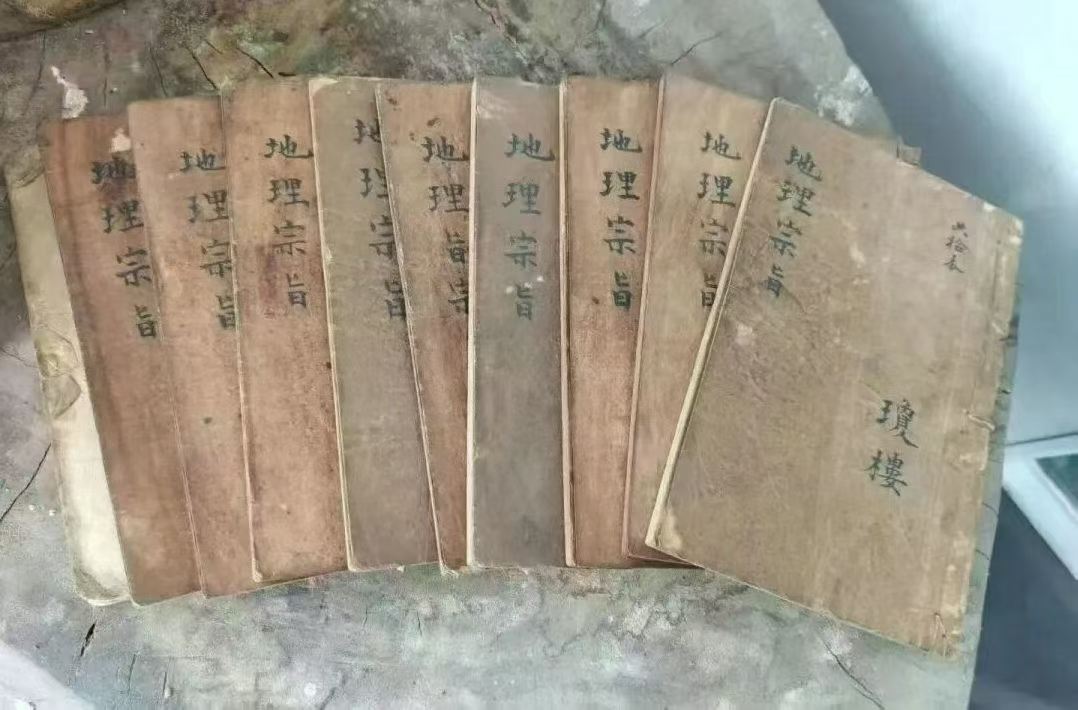 共拾本
瓊樓
地理宗旨
地理宗旨
地理宗旨
地理宗旨
地理旨宗
地理宗旨
地理宗旨
地理宗旨
地理宗旨